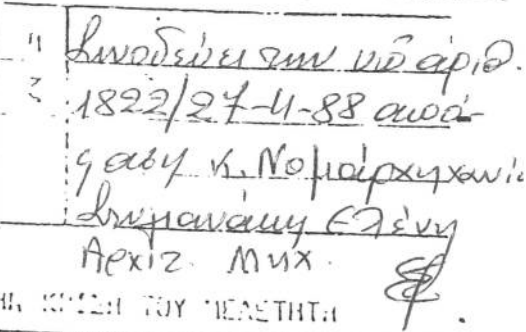 Συνοδεύει την υπ' αριθ.
1822/27-4-88 από-
φαση κ. Νομάρχη Χανί
Ελένη
Αρχιτ. Μηχ.
ΚΡΙΣΗ ΤΟΥ ΜΕΛΕΤΗΤΗ